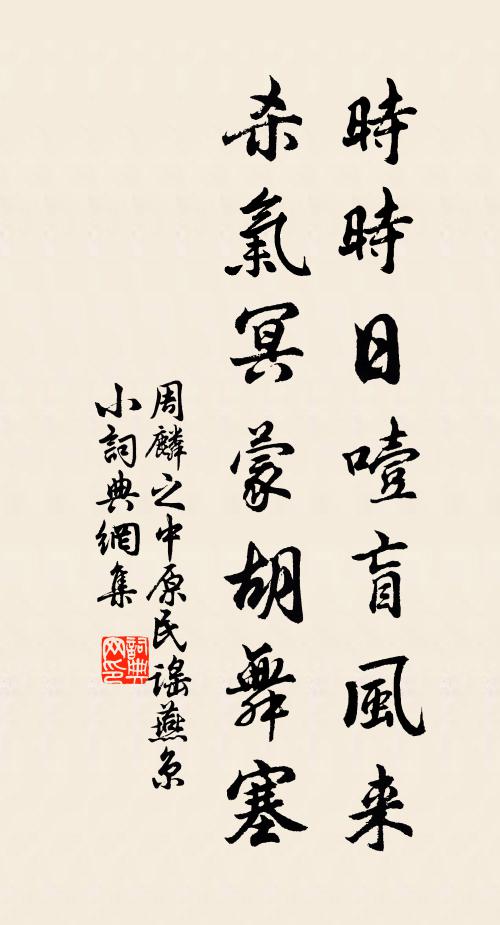 時時日噎盲風来
杀氣冥蒙胡舞塞
周麟之中原民謠燕京
小詞典網集
詞典网印